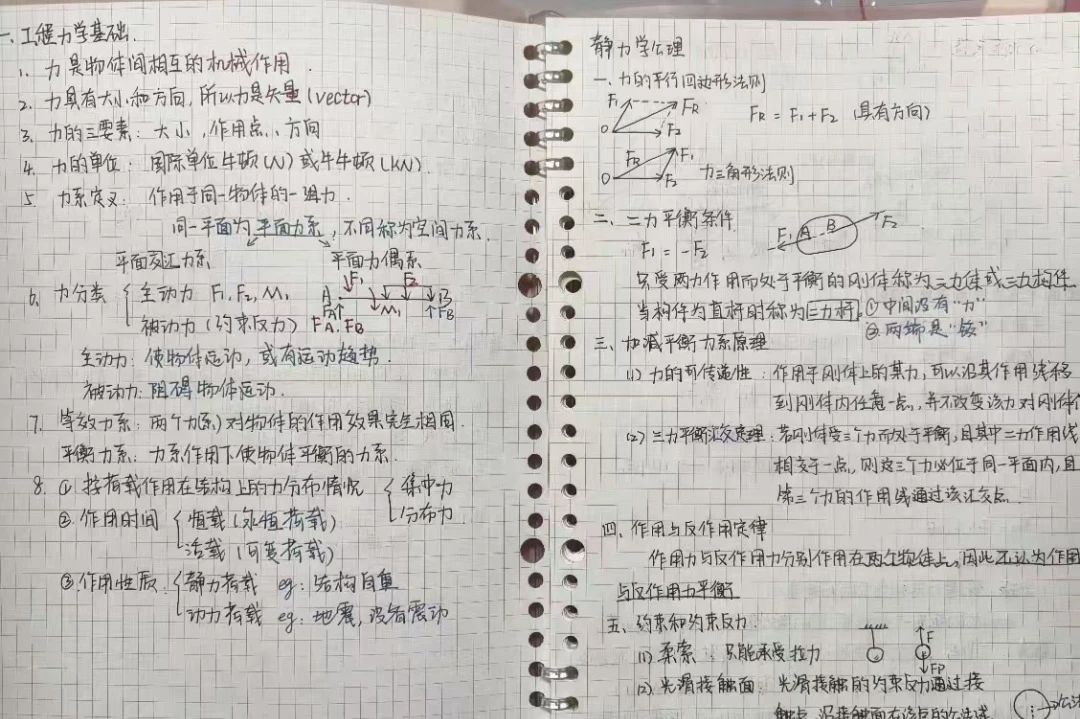 一、工程力学基础.
1. 力是物体间相互的机械作用.
2. 力具有大小和方向,所以力是矢量(vector)
3. 力的三要素: 大小,作用点、方向
4. 力的单位: 国际单位牛顿(N)或牛牛顿(kN).
5. 力系定义: 作用于同一物体的一组力.
同一平面为平面力系,不同称为空间力系.
平面汇力系 平面力偶系
6. 力分类 { 主动力 F₁, F₂, M₁
被动力(约束反力) FA. FB
A F₁ M₁ F₂ B
FA FB
主动力: 使物体运动,或有运动趋势.
被动力: 阻碍物体运动.
7. 等效力系: 两个力系)对物体的作用效果完全相同.
平衡力系: 力系作用下使物体平衡的力系.
8. ① 按荷载作用在结构上的力分布情况 { 集中力
分布力
② 作用时间 { 恒载(永恒荷载)
活载(可变荷载)
③ 作用性质: { 静力荷载 eg: 结构自重
动力荷载 eg: 地震,设备震动
静力学公理
一、力的平行四边形法则
F₁ FR O F₂ FR = F₁ + F₂ (具有方向)
FR F₁ O F₂ 力三角形法则
二、二力平衡条件 F₁ A B F₂
F₁ = -F₂
只受两力作用而处于平衡的刚体称为二力体或二力构件
当构件为直杆时称为二力杆. ①中间没有"力"
②两端是"铰"
三、加减平衡力系原理
(1) 力的可传递性: 作用于刚体上的某力,可以沿其作用线移
到刚体内任意一点,并不改变该力对刚体
(2) 三力平衡汇交定理: 若刚体受三个力而处于平衡,且其中二力作用线
相交于一点,则这三个力必位于同一平面内,且
第三个力的作用线通过该汇交点.
四、作用与反作用定律
作用力与反作用力分别作用在两个物体上,因此不认为作用
与反作用力平衡
五、约束和约束反力
(1) 柔索: 只能承受拉力 F
FP
(2) 光滑接触面: 光滑接触的约束反力通过接
触点,沿接触面在该点的公法线 公法